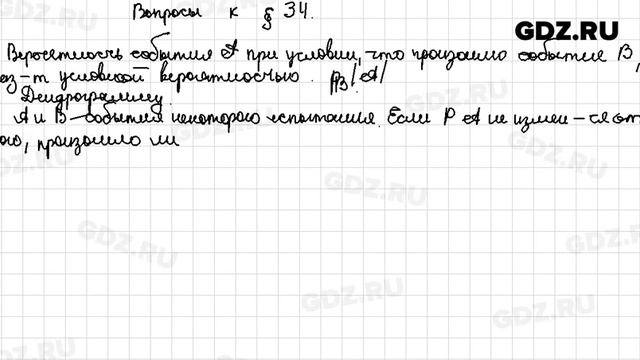 Вопросы к § 34.
GDZ.RU
Вероятность события A при условии, что произошло событие B,
наз-т условной вероятностью. P_B/A/
Дендрограмму.
A и B – события некоторого испытания. Если P A не измен-ся от
того, произошло ли
GDZ.RU
GDZ.RU
GDZ.RU
GDZ.RU
GDZ.RU
GDZ.RU
GDZ.RU
GDZ.RU